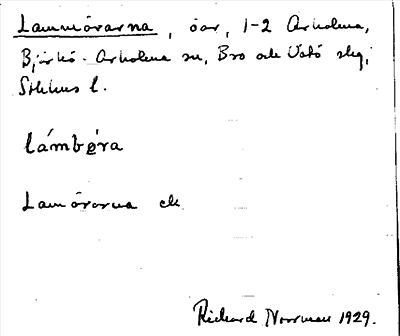 Lammörarna, öar, 1-2 Arholma,
Björkö-Arholma sn, Bro och Vätö slg,
Sthlms l.
lámbøra
Lamörarna ek
Richard Norrman 1929.